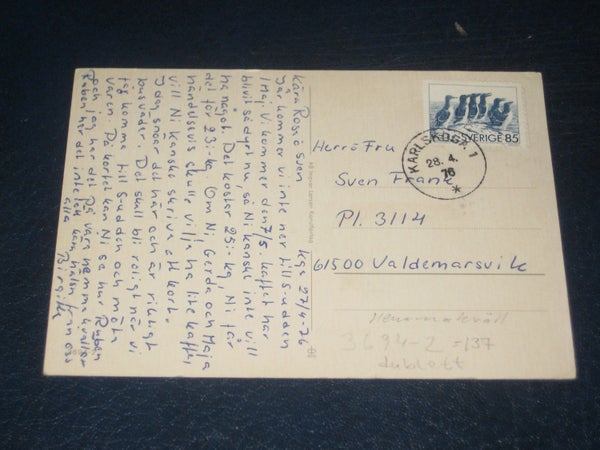 kga 27/4-76
Kära Rosjö Sven
Jär kommer vi inte ner till S-udden
1 Maj. Vi kommer den 7/5. kaffet har
blivit så dyrt nu, så Ni kanske inte vill
ha något. Det kostar 25:- kg, Ni får
det för 23:- kg. Om Ni Gerda och Maja
händelsevis skulle vilja ha lite kaffe,
vill Ni kanske skriva ett kort.
Idag snöar det här och är riktigt
busväder. Det skall bli roligt när vi
får komma till S-udden och möta
våren. På kortet kan Ni se hur Ruben
och jag har det på våra hemma kvällar
Ruben har det inte
alla Birgitta
SVERIGE 85
KARLSKOGA 1
28. 4.
76
Herr o Fru
Sven Frank
Pl. 3114
61500 Valdemarsvik
Hemmakväll
3694-2 = 137
dublett